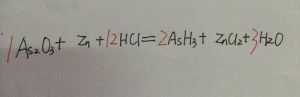 1As₂O₃+ Zn +12HCl=2AsH₃+ ZnCl₂+3H₂O